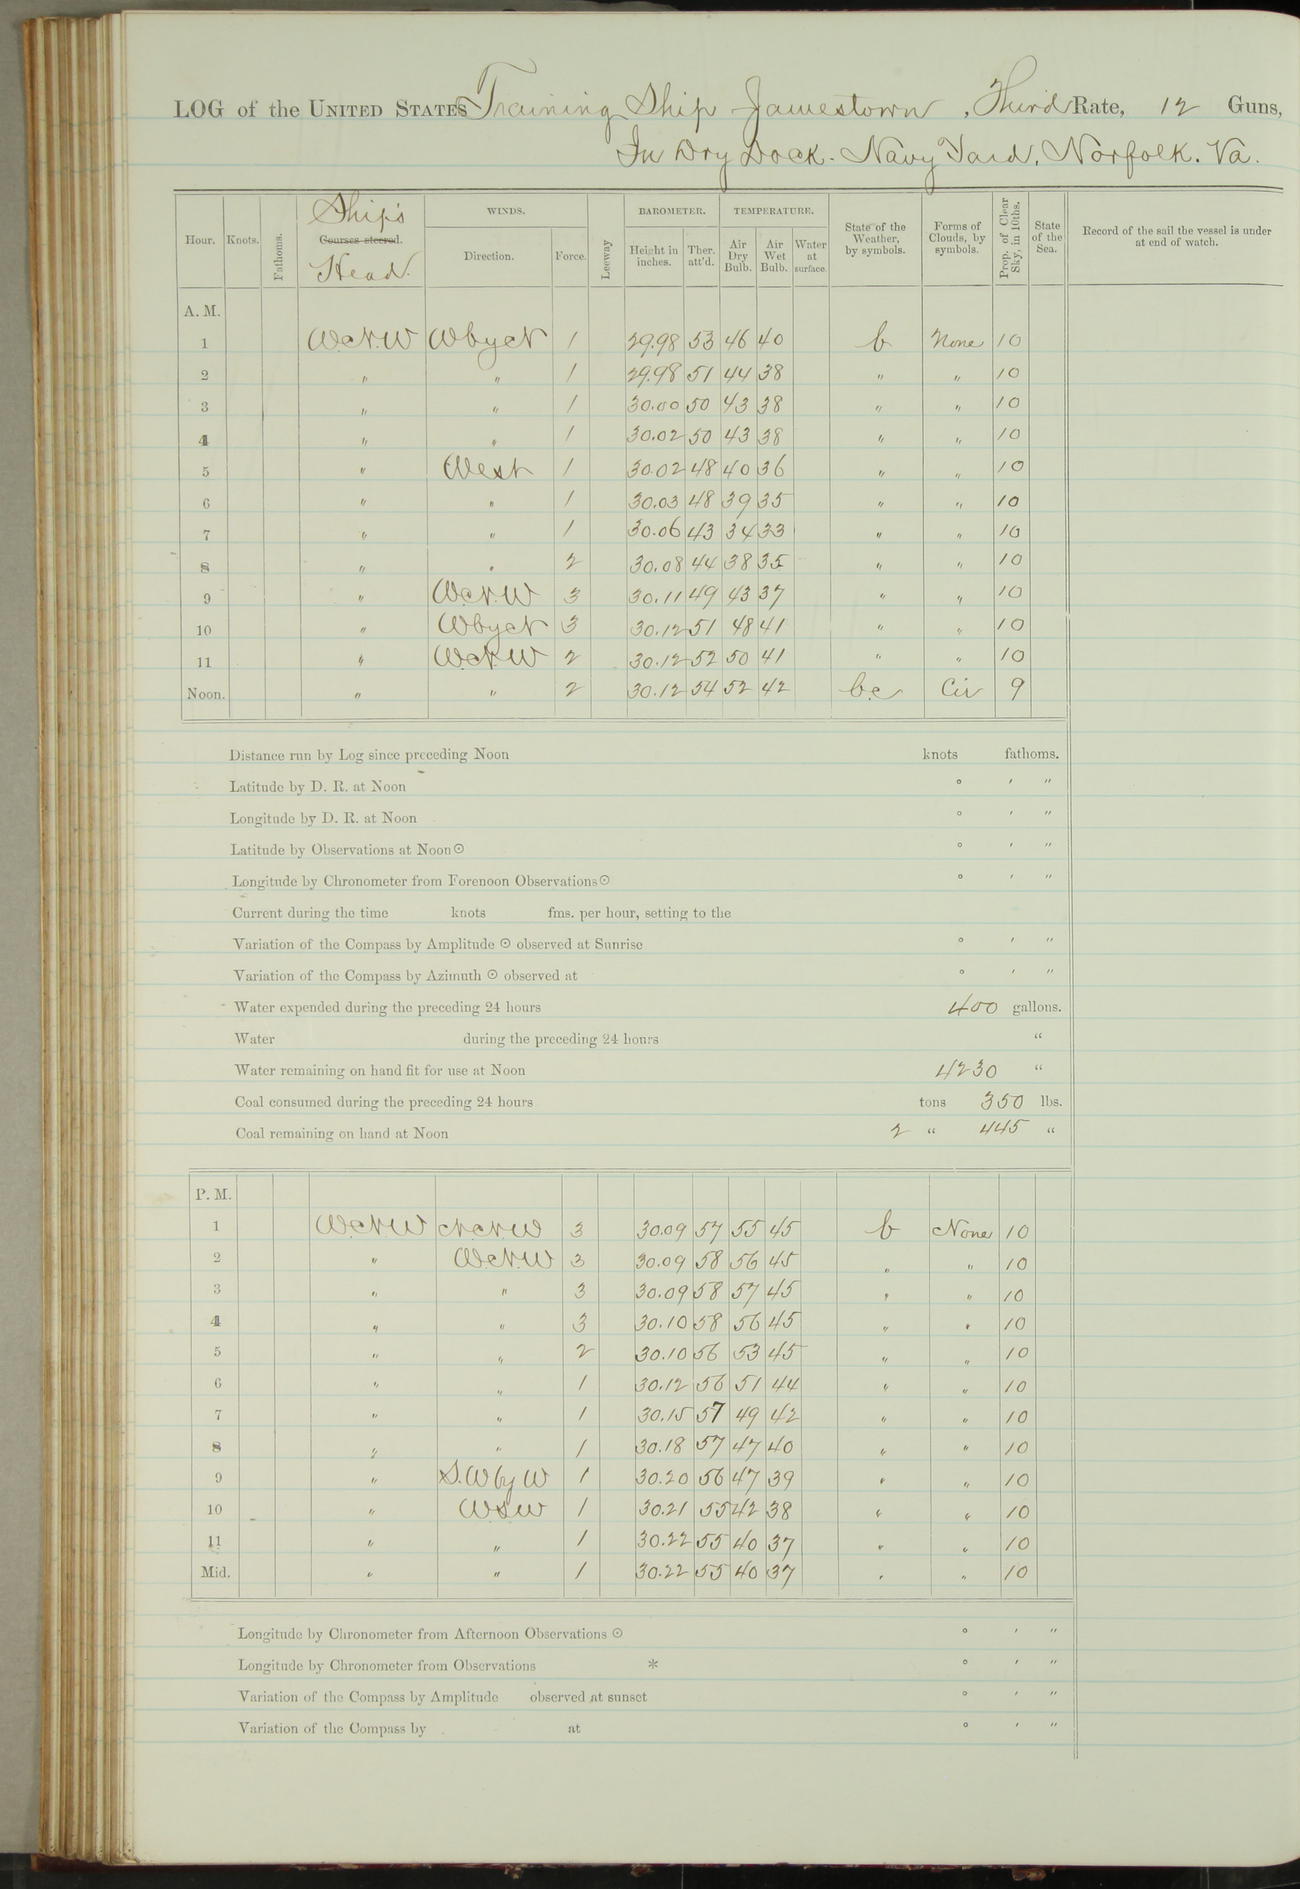 LOG of the UNITED STATES Training Ship Jamestown, Third Rate, 12 Guns,
In Dry Dock. Navy Yard, Norfolk. Va.
Hour. Knots. Fathoms. Ship's Courses steered. Head. WINDS. Direction. Force. Leeway BAROMETER. Height in inches. Ther. att'd. TEMPERATURE. Air Dry Bulb. Air Wet Bulb. Water at surface. State of the Weather, by symbols. Forms of Clouds, by symbols. Prop. of Clear Sky, in 10ths. State of the Sea. Record of the sail the vessel is under at end of watch.
A. M.
1 W.N.W W by N 1 29.98 53 46 40 b None 10
2 " " 1 29.98 51 44 38 " " 10
3 " " 1 30.00 50 43 38 " " 10
4 " " 1 30.02 50 43 38 " " 10
5 " West 1 30.02 48 40 36 " " 10
6 " " 1 30.03 48 39 35 " " 10
7 " " 1 30.06 43 34 33 " " 10
8 " " 2 30.08 44 38 35 " " 10
9 " W.N.W 3 30.11 49 43 37 " " 10
10 " W by N 3 30.12 51 48 41 " " 10
11 " W.N.W 2 30.12 52 50 41 " " 10
Noon. " " 2 30.12 54 52 42 b.c Cir 9
Distance run by Log since preceding Noon knots fathoms.
Latitude by D. R. at Noon ° ' "
Longitude by D. R. at Noon ° ' "
Latitude by Observations at Noon ☉ ° ' "
Longitude by Chronometer from Forenoon Observations ☉ ° ' "
Current during the time knots fms. per hour, setting to the
Variation of the Compass by Amplitude ☉ observed at Sunrise ° ' "
Variation of the Compass by Azimuth ☉ observed at ° ' "
Water expended during the preceding 24 hours 400 gallons.
Water during the preceding 24 hours "
Water remaining on hand fit for use at Noon 4230 "
Coal consumed during the preceding 24 hours tons 350 lbs.
Coal remaining on hand at Noon 2 " 445 "
P. M.
1 W.N.W N.N.W 3 30.09 57 55 45 b None 10
2 " W.N.W 3 30.09 58 56 45 " " 10
3 " " 3 30.09 58 57 45 " " 10
4 " " 3 30.10 58 56 45 " " 10
5 " " 2 30.10 56 53 45 " " 10
6 " " 1 30.12 56 51 44 " " 10
7 " " 1 30.15 57 49 42 " " 10
8 " " 1 30.18 57 47 40 " " 10
9 " S.W by W 1 30.20 56 47 39 " " 10
10 " WSW 1 30.21 55 42 38 " " 10
11 " " 1 30.22 55 40 37 " " 10
Mid. " " 1 30.22 55 40 37 " " 10
Longitude by Chronometer from Afternoon Observations ☉ ° ' "
Longitude by Chronometer from Observations * ° ' "
Variation of the Compass by Amplitude observed at sunset ° ' "
Variation of the Compass by at ° ' "